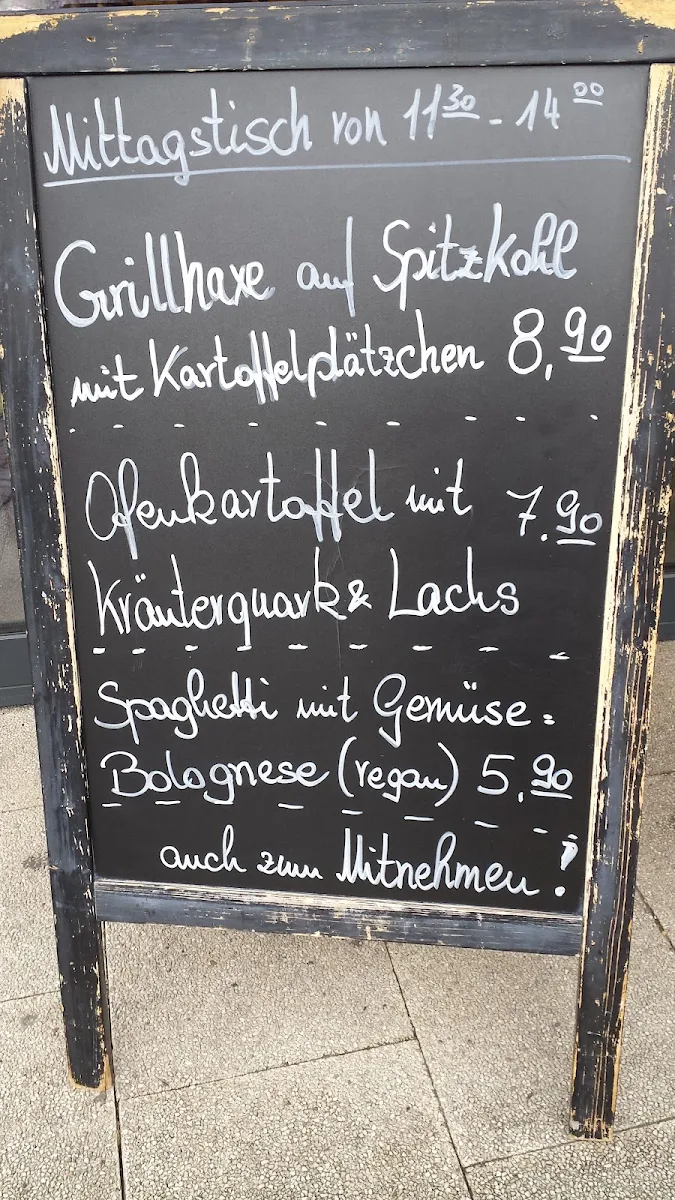 Mittagstisch von 11³⁰ - 14⁰⁰
Grillhaxe auf Spitzkohl
mit Kartoffelplätzchen 8,90
Ofenkartoffel mit 7.90
Kräuterquark & Lachs
Spaghetti mit Gemüse=
Bolognese (vegan) 5,90
auch zum Mitnehmen!